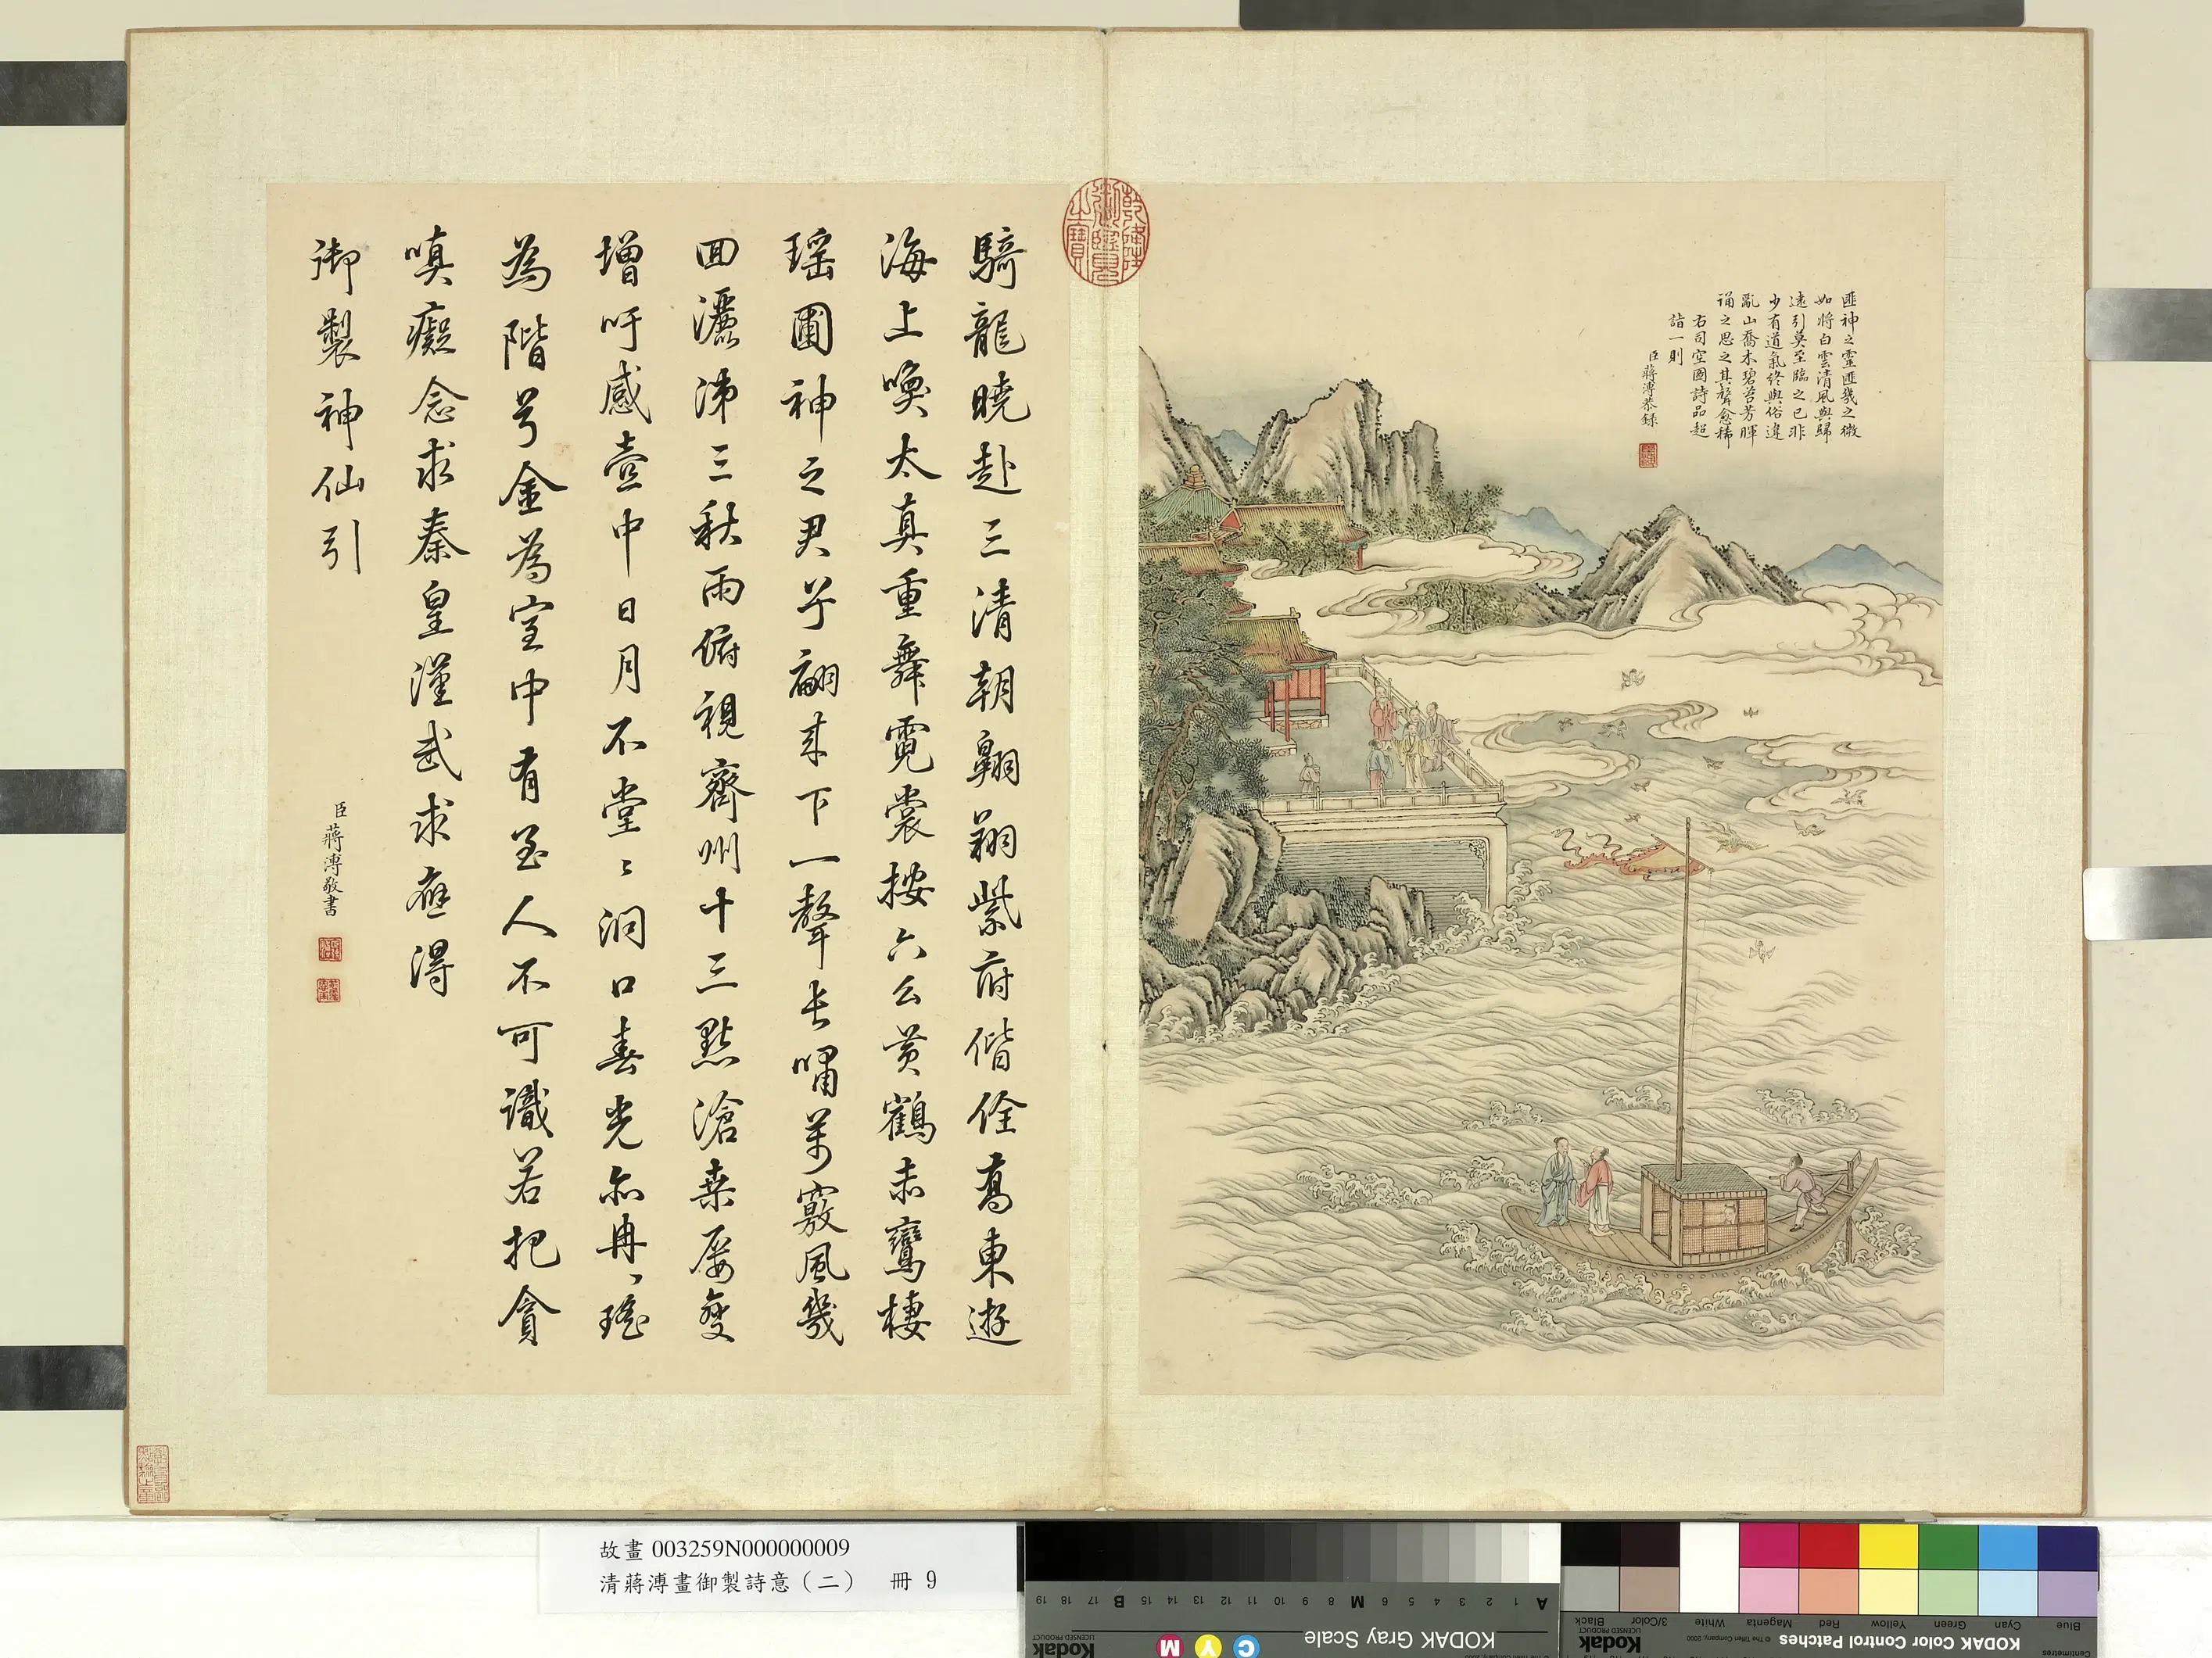 匪神之靈匪幾之微
如將白雲清風與歸
遠引莫至臨之已非
少有道氣終與俗違
亂山喬木碧苔芳暉
誦之思之其聲愈稀
右司空圖詩品超
詣一則
臣蔣溥恭錄
乾隆御覽之寶
騎龍曉赴三清朝翱翔紫府偕佺喬東遊
海上喚太真重舞霓裳按六么黃鶴赤鸞棲
瑤圃神之君兮翩來下一聲長嘯萬竅風幾
回灑涕三秋雨俯視齊州十三點滄桑屢變
增吁感壺中日月不堂〻洞口春光亦冉〻瑤
為階兮金為室中有至人不可識若把貪
嗔癡念求秦皇漢武求應得
御製神仙引
臣蔣溥敬書
故畫 003259N000000009
清蔣溥畫御製詩意（二） 冊 9
KODAK Gray Scale
Kodak
LICENSED PRODUCT
C Y M
A 1 2 3 4 5 6 M 8 9 10 11 12 13 14 15 B 17 18 19
KODAK Color Control Patches
© The Tiffen Company, 2000
Kodak
LICENSED PRODUCT
Blue Cyan Green Yellow Red Magenta White 3/Color Black
Centimetres